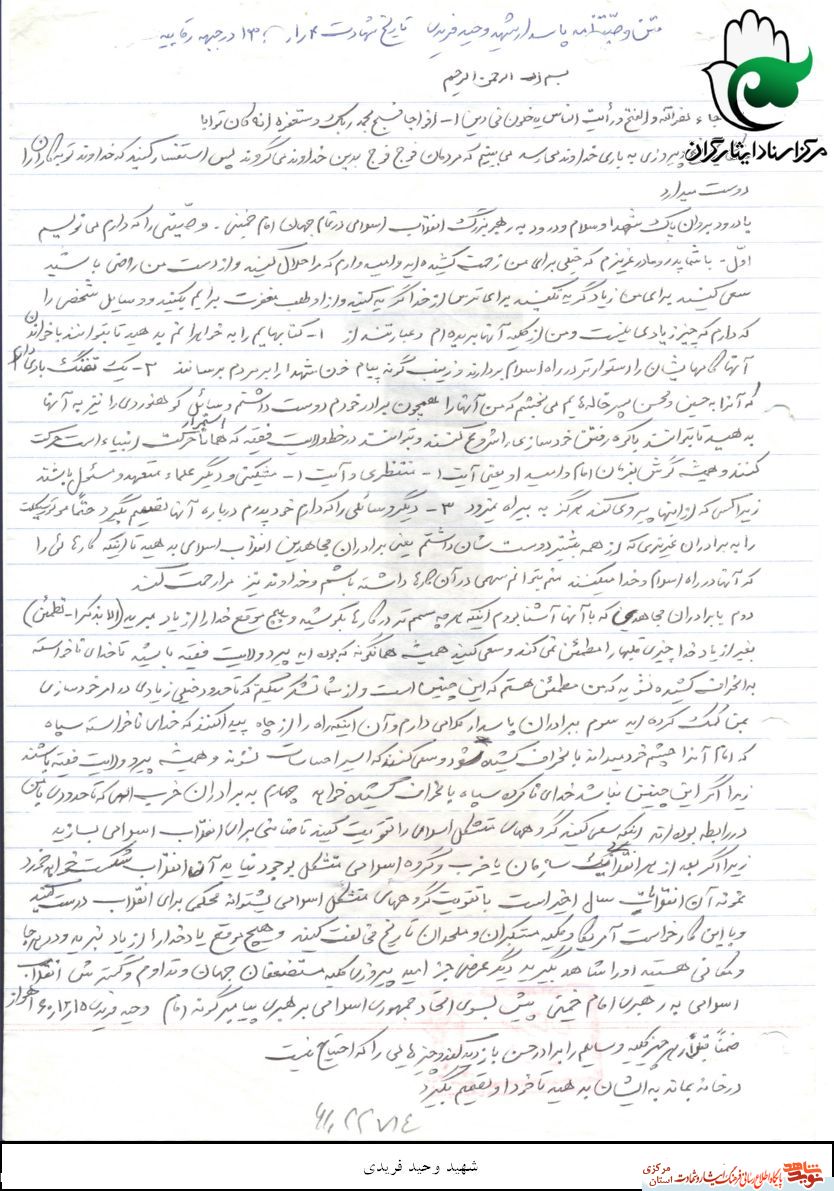 متن وصیتنامه پاسدار شهید وحید فریدی تاریخ شهادت در جبهه رقابیه
بسم الله الرحمن الرحیم
جاء نصرالله والفتح و رأیت الناس یدخلون فی دین ا... افواجا فسبح بحمد ربک و ستغفره انه کان توابا
مرکز اسناد ایثارگران
و پیروزی به یاری خداوند می‌رسد می بینیم که مردمان فوج فوج بدین خداوند می گروند پس استغفار کنید که خداوند توبه کاران را
دوست میدارد
با درود بروان پاک شهدا و سلام و درود به رهبر بزرگ انقلاب اسلامی در تمام جهان امام خمینی . وصیتی را که دارم می نویسم
اول - با شما پدر و مادر عزیزم که خیلی برای من زحمت کشیده اید و امید وارم که مرا حلال کنید و از دست من راضی باشید
سعی کنید برای من زیاد گریه نکنید برای ترس از خدا گریه کنید و از او طلب مغفرت برایم بکنید و وسایل شخصی را
که دارم که چیز زیادی نیست و من از کلیه آنها بریده ام عبارتند از ۱- کتابهایم را به خواهرانم بدهید تا بتوانند با خواندن
آنها گامهایشان را استوارتر در راه اسلام بردارند و زینب گونه پیام خون شهدا را بر مردم برسانند ۲- یک تفنگ بادی دارم
که آنرا به حسین و محسن پسر خاله هایم می بخشم که من آنها را همچون برادر خودم دوست داشتم و وسایل کوهنوردی را نیز به آنها
بدهید تا بتوانند با کوه رفتن خودسازی را شروع کنند و بتوانند در خط ولایت فقیه که همانا استمرار حرکت انبیاء است حرکت
کنند و همیشه گوش بفرمان امام و امید او یعنی آیت ا... منتظری و آیت ا... مشکینی و دیگر علماء متعهد و مسئول باشند
زیرا کسی که از اینها پیروی کند هرگز به بیراه نمیرود ۳- دیگر وسائلی را که دارم خود پدرم درباره آنها تصمیم بگیرد حتماً موتورسیکلت
را به برادران عزیزی که از همه بیشتر دوستشان داشتم یعنی برادران مجاهدین انقلاب اسلامی بدهید تا اینکه کارهائی را
که آنها در راه اسلام و خدا میکنند منم بتوانم سهمی در آن کارها داشته باشم و خداوند نیز مرا رحمت کند
دوم با برادران مجاهدی که با آنها آشنا بودم اینکه هر چه مصمم تر در کارها بکوشید و هیچ موقع خدا را از یاد مبرید (الا بذکر ا... تطمئن)
بغیر از یاد خدا چیزی قلبها را مطمئن نمی کند و سعی کنید همیشه همانگونه که بوده اید پیرو ولایت فقیه باشید تا خدای ناخواسته
به انحراف کشیده نشوید که من مطمئن هستم که این چنین است و از شما تشکر میکنم که تا حدود خیلی زیادی در امر خودسازی
بمن کمک کرده اید سوم ببرادران پاسدار کلامی دارم و آن اینکه راه را از چاه پیدا کنند که خدای ناخواسته سپاه
که امام آنرا چشم خود میداند به انحراف کشیده نشود و سعی کنند که اسیر احساسات نشوند و همیشه پیرو ولایت فقیه باشند
زیرا اگر این چنین نباشد خدای ناکرده سپاه به انحراف کشیده خواهد چهارم به برادران حزب الهی که تا حدودی با من
در رابطه بوده اند اینکه سعی کنید گروههای متشکل اسلامی را تقویت کنید تا ضامنی برای انقلاب اسلامی بسازید
زیرا اگر بعد از هر انقلاب یک سازمان یا حزب و گروه اسلامی متشکل بوجود نیاید آن انقلاب شکست خواهد خورد
نمونه آن انقلابات سال اخیر است با تقویت گروههای متشکل اسلامی پشتوانه محکمی برای انقلاب درست کنید
و با این کار خواست آمریکا و کلیه مستکبران و ملحدان تاریخ مخالفت کنید و هیچ موقع یاد خدا را از یاد نبرید و در هر جا
و مکانی هستید او را شاهد بگیرید دیگر عرضی جز امید پیروزی کلیه مستضعفان جهان و تداوم و گسترش انقلاب
اسلامی به رهبری امام خمینی پیش بسوی اتحاد جمهوری اسلامی بر هبری پیامبر گونه امام وحید فریدی ۶۰/۱۲/۱۵ اهواز
ضمناً قبل از هر چیز کلیه وسایلم را برادر حسن بازدید کند و چیزهایی را که احتیاج نیست
در خانه بماند به ایشان بدهید تا خود او تصمیم بگیرد
شهید وحید فریدی
نوید شاهد
پایگاه اطلاع رسانی فرهنگ ایثار و شهادت استان مرکزی